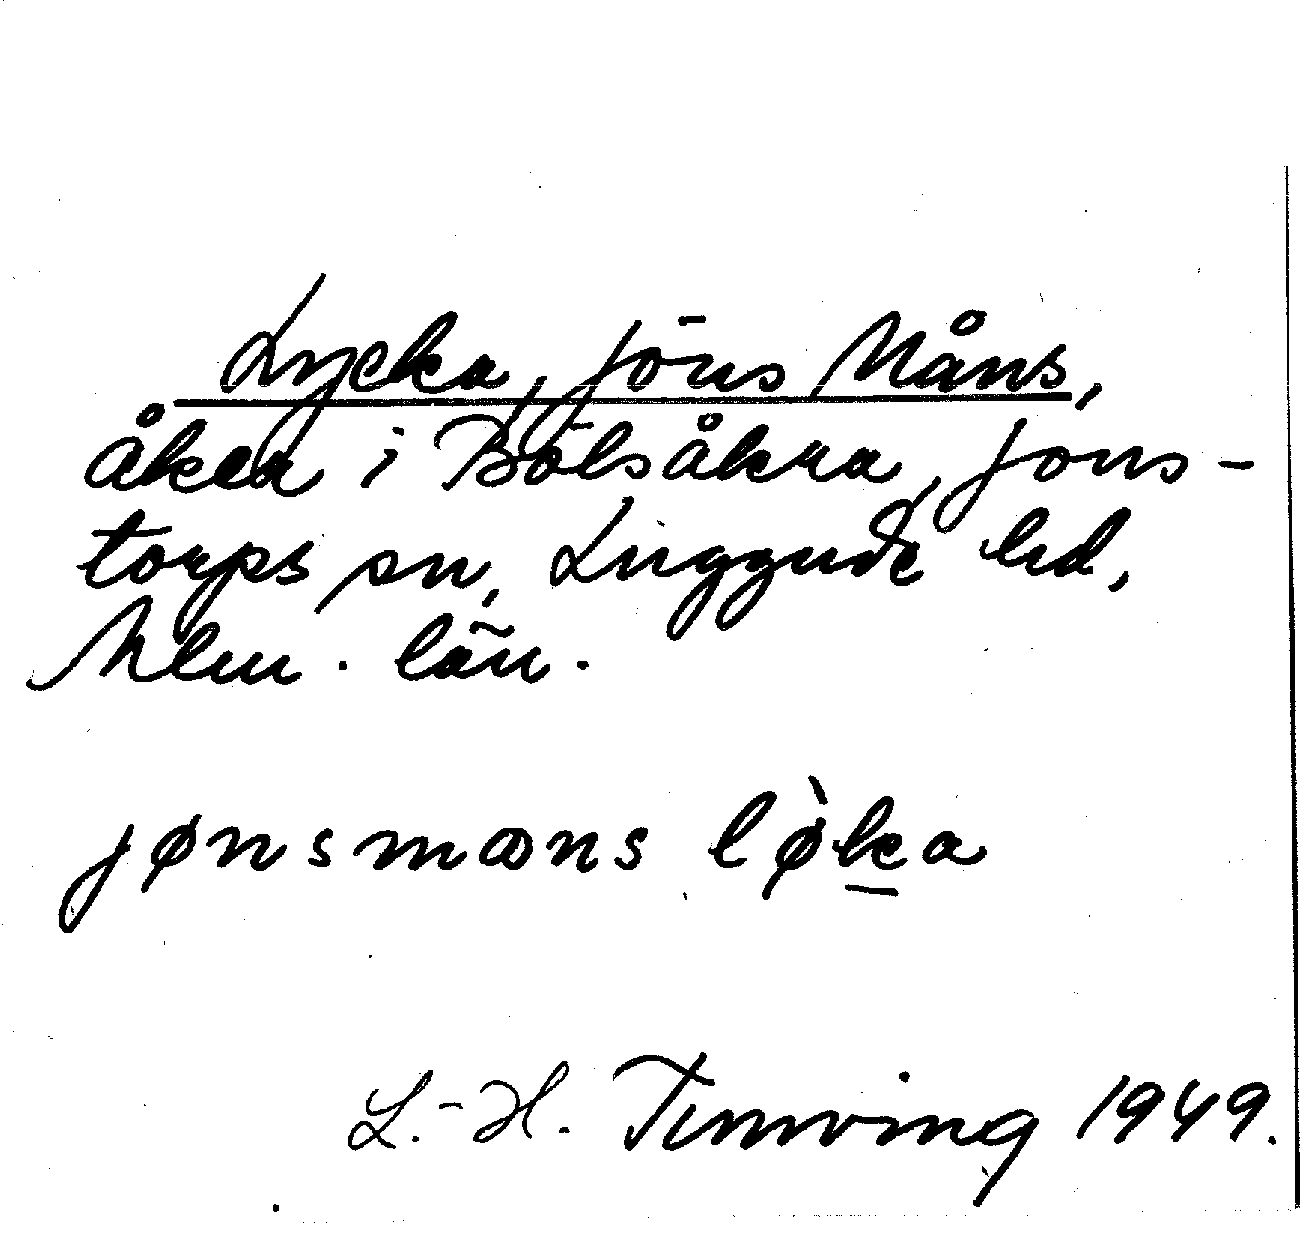 Lycka, Jöns Måns,
åker i Bölsåkra, Jons-
torps sn, Luggude hd,
Mlm. län.
jønsmɑns lø̀ka
L.-H. Tunving 1949.